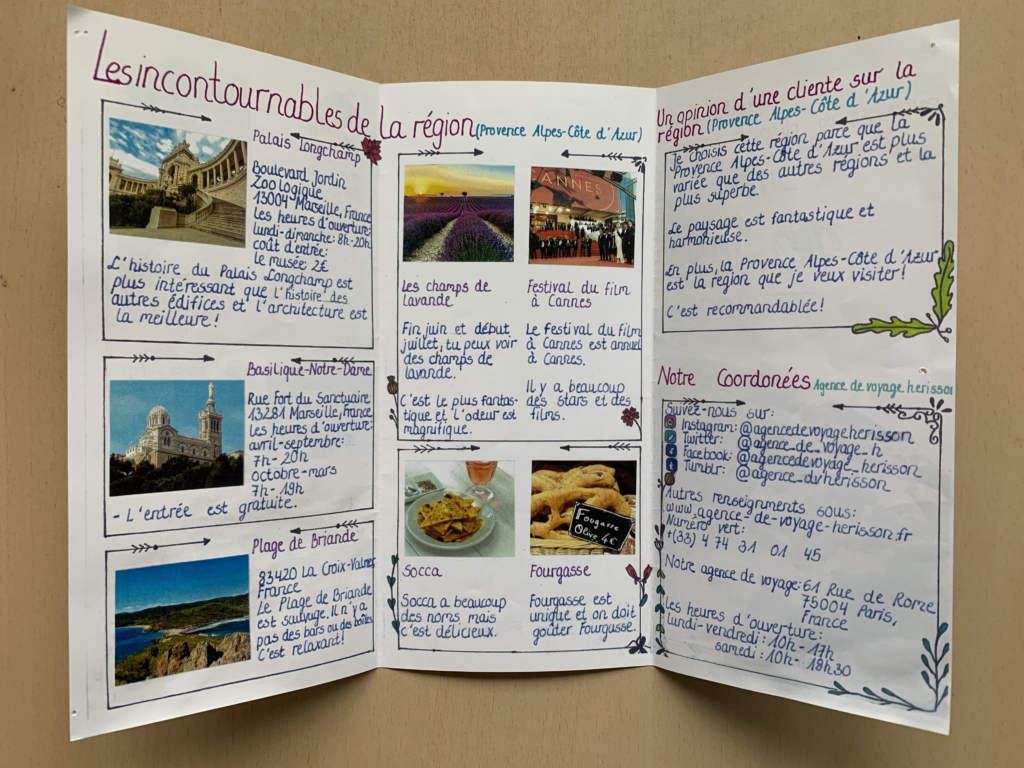 Les incontournables de la région (Provence Alpes-Côte d'Azur)
Palais Longchamp
Boulevard Jordin
Zoo Logique
13004 Marseille, France
les heures d'ouverture:
lundi-dimanche: 8h-20h
coût d'entrée:
le musée 2€
L'histoire du Palais Longchamp est
plus intéressant que l'histoire des
autres édifices et l'architecture est
la meilleure!
Basilique-Notre-Dame
Rue Fort du Sanctuaire
13281 Marseille, France
les heures d'ouverture:
avril-septembre:
7h-20h
octobre-mars
7h-19h
- L'entrée est gratuite.
Plage de Briande
83420 La Croix-Valmer,
France
Le Plage de Briande
est sauvage. Il n'y a
pas des bars ou des boîtes.
C'est relaxant!
CANNES
Les champs de
lavande
Fin juin et début
juillet, tu peux voir
des champs de
lavande.
C'est le plus fantas-
tique et l'odeur est
magnifique.
Festival du film
à Cannes
Le Festival du film
à Cannes est annuel
à Cannes.
Il y a beaucoup
des stars et des
films.
Socca
Socca a beaucoup
des noms mais
c'est délicieux.
Fougasse
Olive 4€
Fourgasse
Fourgasse est
unique et on doit
goûter Fourgasse.
Un opinion d'une cliente sur la
région (Provence Alpes-Côte d'Azur)
Je choisis cette région parce que la
Provence Alpes-Côte d'Azur est plus
variée que des autres régions et la
plus superbe.
Le paysage est fantastique et
harmonieuse.
En plus, la Provence Alpes-Côte d'Azur
est la region que je veux visiter!
C'est recommandablée!
Notre Coordonées Agence de voyage herisson
Suivez-nous sur:
Instagram: @agencedevoyageherisson
Twitter: @agence_de_voyage_h
Facebook: @agencedevoyage_herisson
Tumblr: @agence_dvherisson
Autres renseignments sous:
www.agence-de-voyage-herisson.fr
Numéro vert:
+(33) 4 74 31 01 45
Notre agence de voyage: 61 Rue de Rome
75004 Paris,
France
Les heures d'ouverture:
lundi-vendredi: 10h-17h
samedi: 10h-18h30